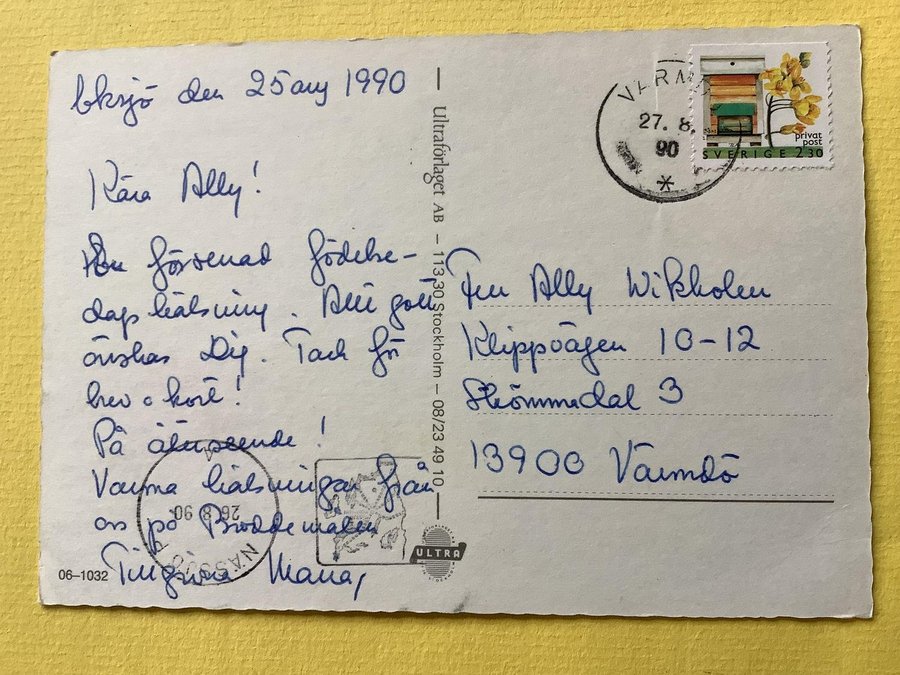 den 25 aug 1990
Kära Ally!
En försenad födelse-
dagshälsning. Allt gott
önskas Dig. Tack för
brev o kort!
På återseende!
Varma hälsningar från
oss på
Tillgivna
06-1032
Ultraförlaget AB – 113 30 Stockholm – 08/23 49 10
ULTRA
26.8.90
NÄSSJÖ
VÄRM
27. 8.
90
privat
post
SVERIGE 2.30
Ally Wikholm
Klippvägen 10-12
Strömmadal 3
13900 Värmdö